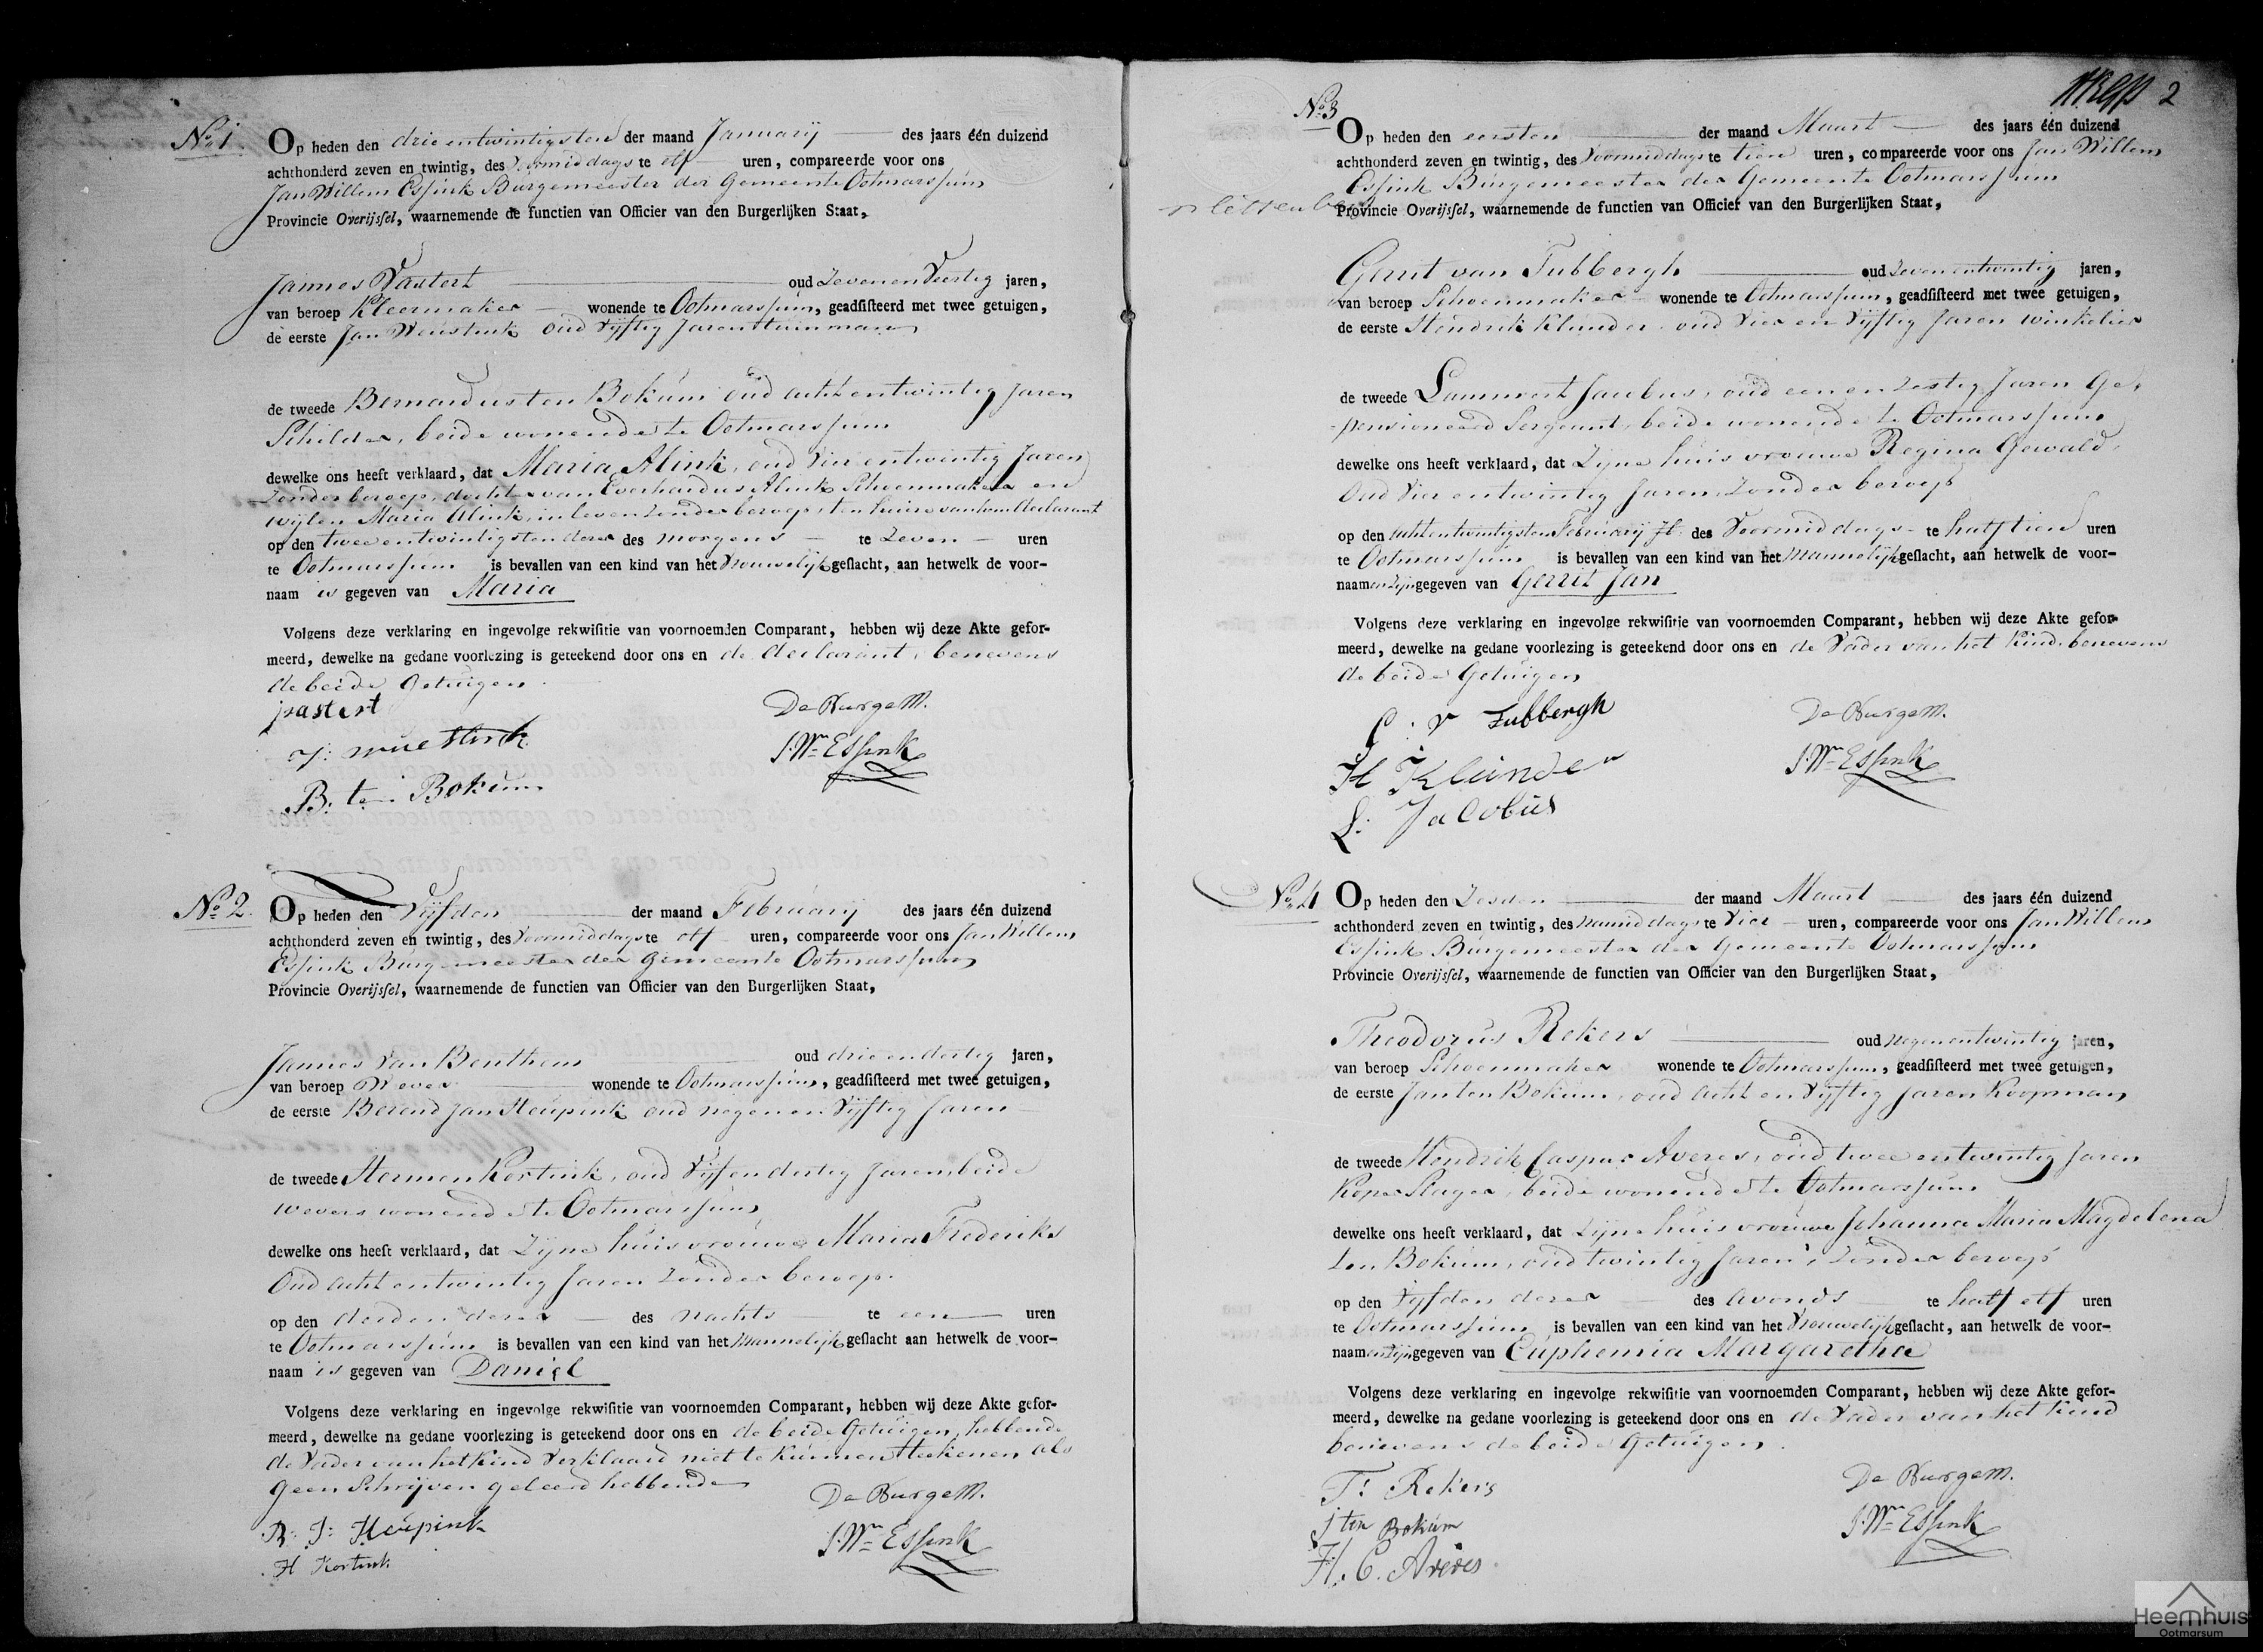 No. 1. Op heden den drie entwintigsten der maand Januarij des jaars één duizend
achthonderd zeven en twintig, des Voormiddags te elf uren, compareerde voor ons
Jan Willem Essink Burgemeester der Gemeente Ootmarssum
Provincie Overijssel, waarnemende de functien van Officier van den Burgerlijken Staat,
Jannes Pastert oud Zeven en Veertig jaren,
van beroep Kleermaker wonende te Ootmarssum, geadsisteerd met twee getuigen,
de eerste Jan Weustink oud Vijftig Jaren tuinman
de tweede Bernardus ten Bokum oud acht entwintig Jaren
Schilder, beide wonende te Ootmarssum
dewelke ons heeft verklaard, dat Maria Alink, oud Vier entwintig Jaren
Zonder beroep, dochter van Everhardus Alink Schoenmaker en
wijlen Maria Alink, in leven Zonder beroep, ten huize van hem declarant
op den twee entwintigsten dezer des morgens te Zeven uren
te Ootmarssum is bevallen van een kind van het Vrouwelijk geslacht, aan hetwelk de voor-
naam is gegeven van Maria
Volgens deze verklaring en ingevolge rekwisitie van voornoemden Comparant, hebben wij deze Akte gefor-
meerd, dewelke na gedane voorlezing is geteekend door ons en de declarant, benevens
de beide Getuigen
pastert
De Burgem.
J: wuestink
J. Wm Essink
B: ten Bokum
No. 2. Op heden den Vijfden der maand Februarij des jaars één duizend
achthonderd zeven en twintig, des Voormiddags te elf uren, compareerde voor ons Jan Willem
Essink Burgemeester der Gemeente Ootmarssum
Provincie Overijssel, waarnemende de functien van Officier van den Burgerlijken Staat,
Jannes van Benthem oud drie en dertig jaren,
van beroep Wever wonende te Ootmarssum, geadsisteerd met twee getuigen,
de eerste Berend Jan Heupink oud negen en Vijftig Jaren
de tweede Hermen Kortink, oud Vijf en dertig Jaren, beide
wevers wonende te Ootmarssum
dewelke ons heeft verklaard, dat Zijne huisvrouwe Maria Frederiks
Oud acht entwintig Jaren Zonder beroep.
op den derden dezer des nachts te een uren
te Ootmarssum is bevallen van een kind van het Mannelijk geslacht aan hetwelk de voor-
naam is gegeven van Daniel
Volgens deze verklaring en ingevolge rekwisitie van voornoemden Comparant, hebben wij deze Akte gefor-
meerd, dewelke na gedane voorlezing is geteekend door ons en de beide Getuigen, hebbende
de Vader van het Kind Verklaard niet te kunnen teekenen als
geen Schrijven geleerd hebbende
De Burgem.
B: J: Heupink
J. Wm Essink
H Kortink
2
No. 3 Op heden den eersten der maand Maart des jaars één duizend
achthonderd zeven en twintig, des Voormiddags te tien uren, compareerde voor ons Jan Willem
Essink Burgemeester der Gemeente Ootmarssum
Provincie Overijssel, waarnemende de functien van Officier van den Burgerlijken Staat,
Gerrit van Tubbergh oud Zeven entwintig jaren,
van beroep Schoenmaker wonende te Ootmarssum, geadsisteerd met twee getuigen,
de eerste Hendrik Klunder oud Vier en Vijftig Jaren winkelier
de tweede Lammert Jacobus, oud een en Zestig Jaren Ge-
pensioneerd Sergeant, beide wonende te Ootmarssum
dewelke ons heeft verklaard, dat Zijne huisvrouwe Regina Gewald
Oud Vier entwintig Jaren Zonder beroep
op den acht entwintigsten Februarij Jl. des Voormiddags te half tien uren
te Ootmarssum is bevallen van een kind van het Mannelijk geslacht, aan hetwelk de voor-
naamen zijn gegeven van Gerrit Jan
Volgens deze verklaring en ingevolge rekwisitie van voornoemden Comparant, hebben wij deze Akte gefor-
meerd, dewelke na gedane voorlezing is geteekend door ons en de Vader van het Kind benevens
de beide Getuigen
G: v Tubbergh
De Burgem.
H Klunder
J. Wm Essink
L: Jacobus
No. 4 Op heden den Zesden der maand Maart des jaars één duizend
achthonderd zeven en twintig, des namiddags te Vier uren, compareerde voor ons Jan Willem
Essink Burgemeester der Gemeente Ootmarssum
Provincie Overijssel, waarnemende de functien van Officier van den Burgerlijken Staat,
Theodorus Rekers oud negen entwintig jaren,
van beroep Schoenmaker wonende te Ootmarssum, geadsisteerd met twee getuigen,
de eerste Jan ten Bokum, oud acht en Vijftig Jaren Koopman
de tweede Hendrik Caspar Averes, oud twee entwintig Jaren
Koper Slager, beide wonende te Ootmarssum
dewelke ons heeft verklaard, dat Zijne huisvrouwe Johanna Maria Magdelena
ten Bokum, oud twintig Jaren, Zonder beroep
op den Vijfden dezer des Avonds te half elf uren
te Ootmarssum is bevallen van een kind van het Vrouwelijk geslacht, aan hetwelk de voor-
naamen zijn gegeven van Euphemia Margaretha
Volgens deze verklaring en ingevolge rekwisitie van voornoemden Comparant, hebben wij deze Akte gefor-
meerd, dewelke na gedane voorlezing is geteekend door ons en de Vader van het Kind
benevens de beide Getuigen
T: Rekers
De Burgem.
J ten Bokum
J. Wm Essink
H. C. Averes
Heemhuis
Ootmarsum